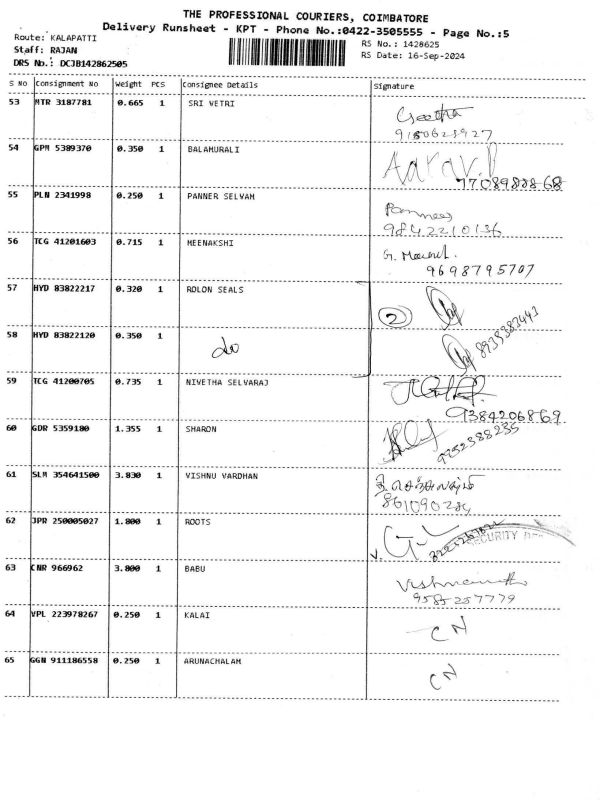 THE PROFESSIONAL COURIERS, COIMBATORE
Delivery Runsheet - KPT - Phone No.:0422-3505555 - Page No.:5
Route: KALAPATTI
RS No.: 1428625
Staff: RAJAN
RS Date: 16-Sep-2024
DRS No.: DCJB142862505
S NO Consignment No Weight PCS Consignee Details Signature
53 MTR 3187781 0.665 1 SRI VETRI
Geetha
54 GPM 5389370 0.350 1 BALAMURALI
Aarav.P
55 PLN 2341998 0.250 1 PANNER SELVAM
9842210136
56 TCG 41201603 0.715 1 MEENAKSHI
9698795707
57 HYD 83822217 0.320 1 ROLON SEALS
2
58 HYD 83822120 0.350 1
do
8939383443
59 TCG 41200705 0.735 1 NIVETHA SELVARAJ
9384206869
60 GDR 5359180 1.355 1 SHARON
9952388235
61 SLM 354641500 3.830 1 VISHNU VARDHAN
62 JPR 250005027 1.800 1 ROOTS
SECURITY
63 CNR 966962 3.800 1 BABU
9585257779
64 VPL 223978267 0.250 1 KALAI
CN
65 GGN 911186558 0.250 1 ARUNACHALAM
CN